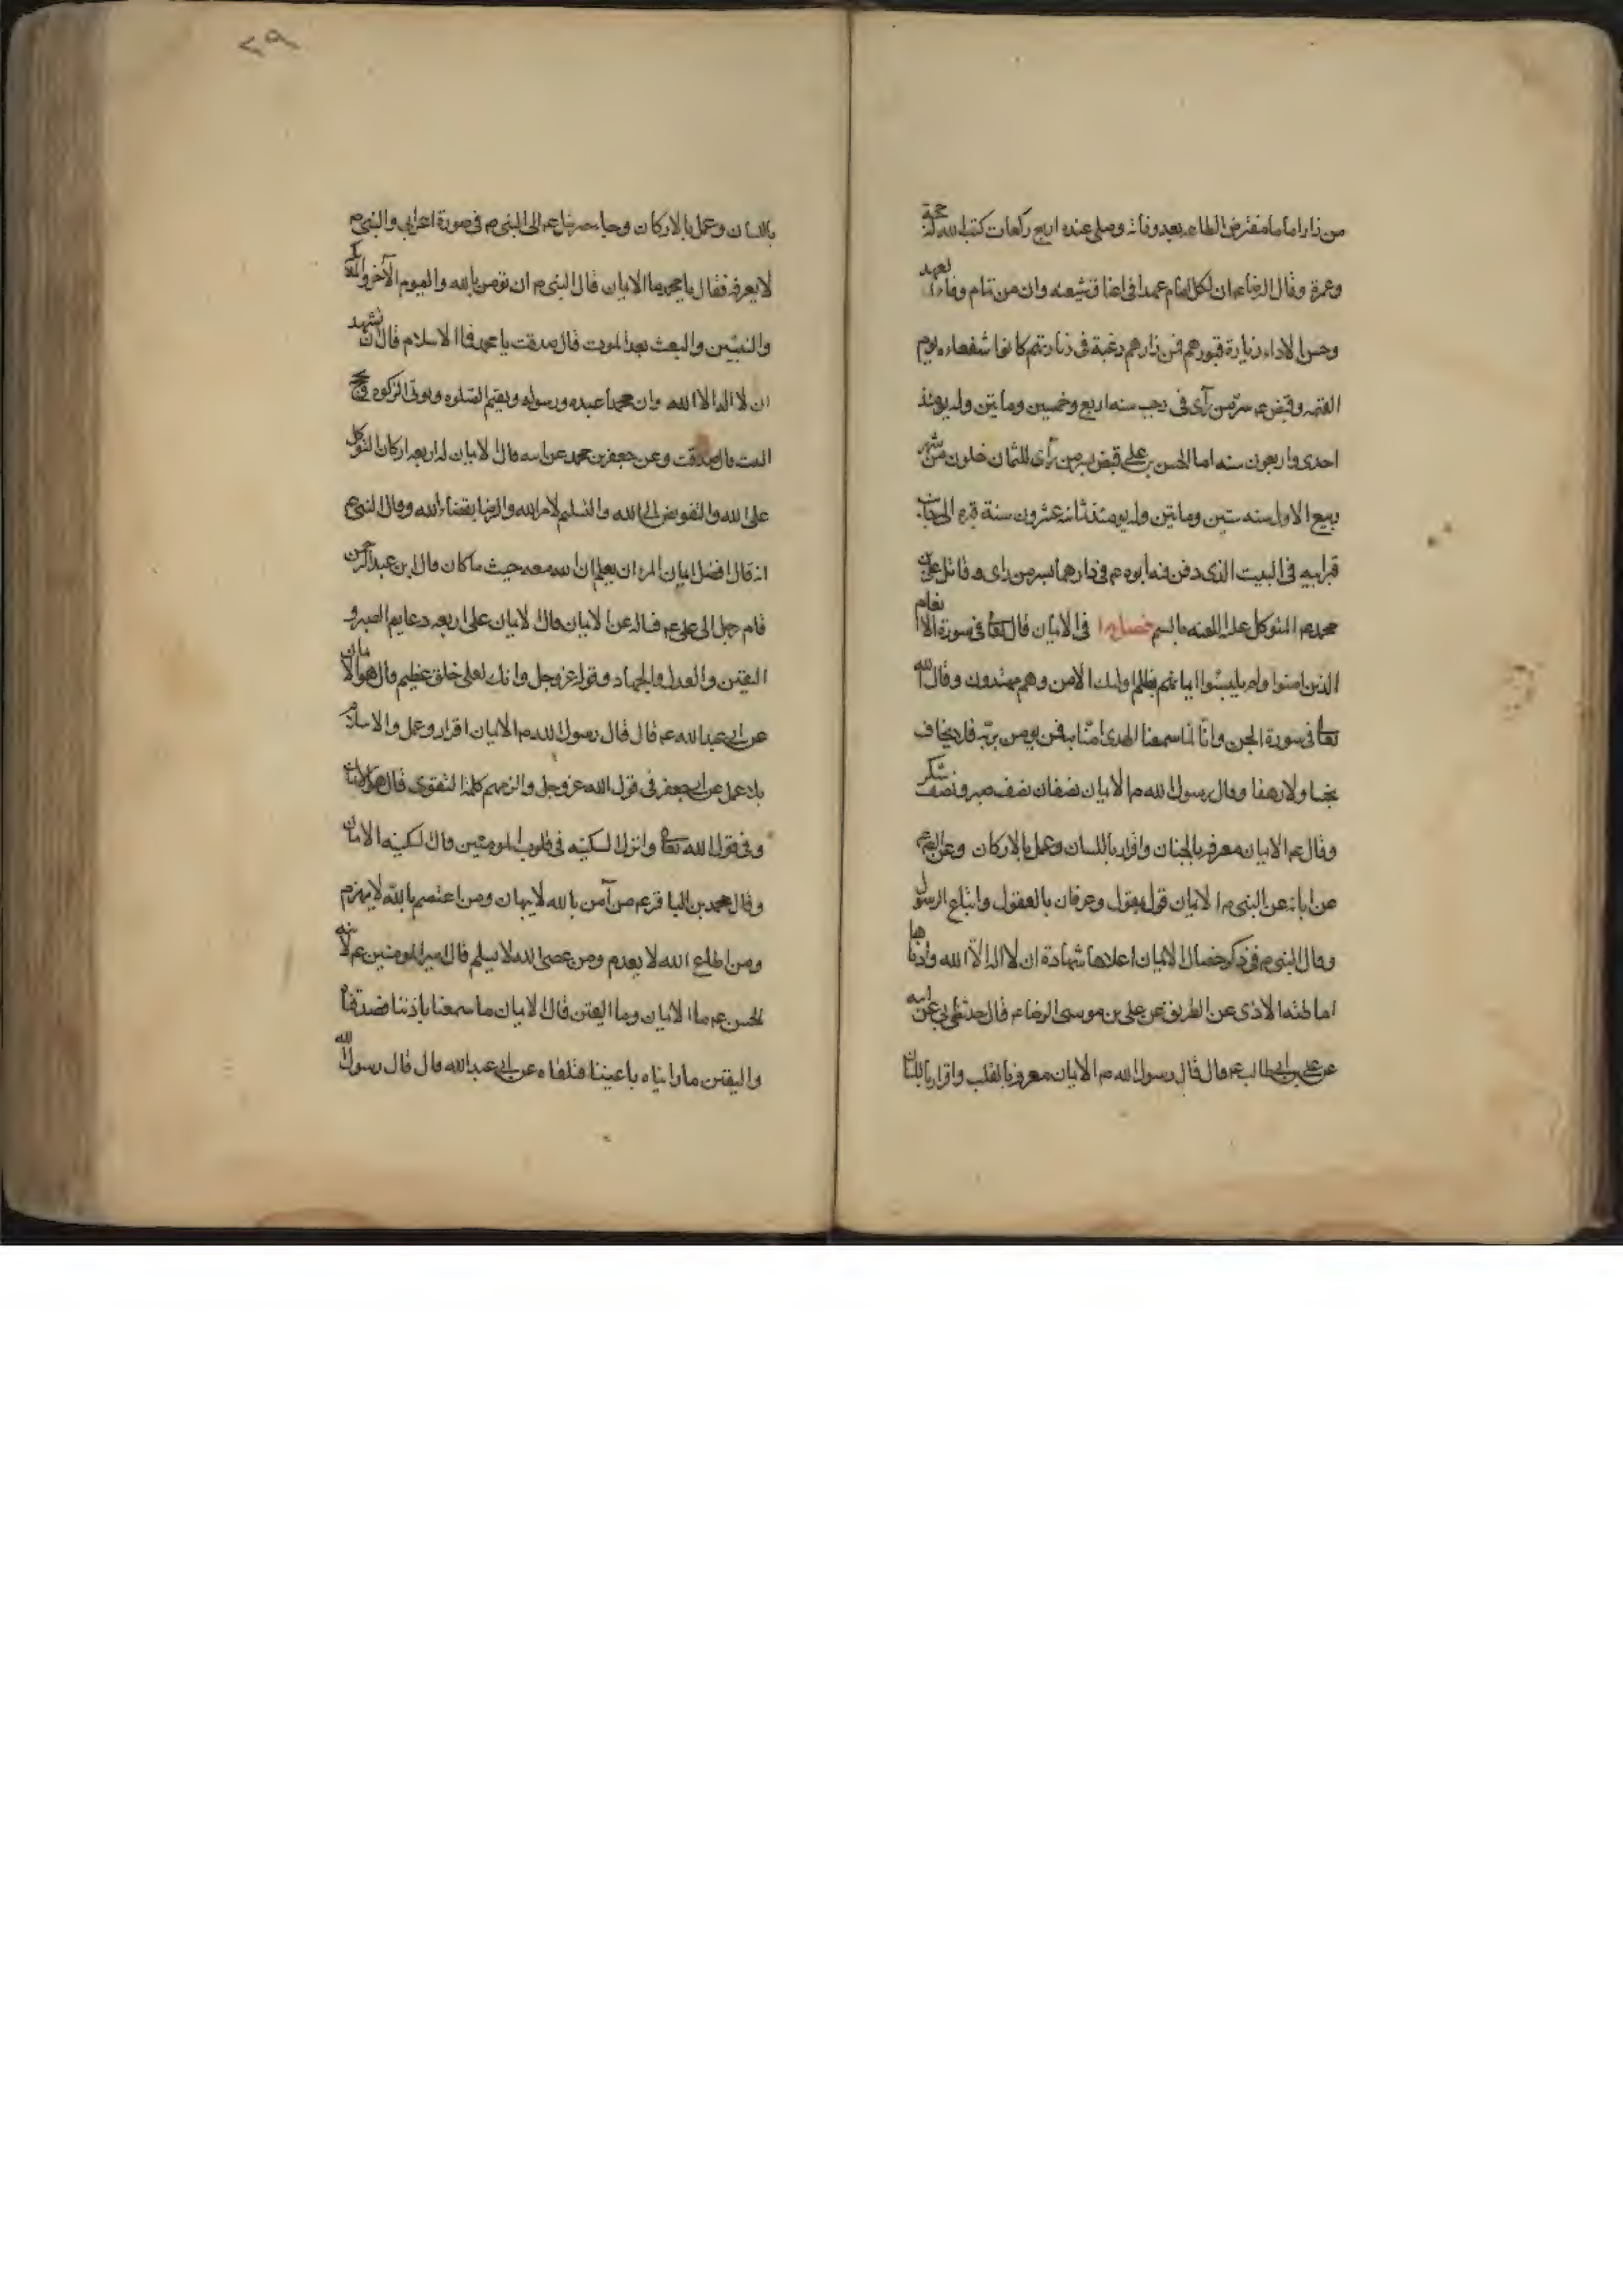 من زار اماما مفترض الطاعه بعد وفاته وصلى عنده اربع ركعات كتب الله له حجة
وعمرة وقال الرضا عم ان لكل امام عهدا فى اعناق شيعته وان من تمام وفاء لعهد
وحسن الاداء زيارة قبورهم فمن زارهم رغبة فى زيارتهم كانوا شفعاءه يوم
القيمه وقبض عم سر من رآى فى رجب سنه اربع وخمسين وماتين وله يومئذ
احدى واربعون سنه اما الحسن بن على قبض بسر من رآى للثمان خلون من شهر
ربيع الاول سنه ستين وماتين وله يومئذ ثمانيه عشرون سنة قبره الى جانب
قبر ابيه فى البيت الذى دفن فيه ابوه عم فى دارهما بسر من راى وقاتل على بن
محمد عم المتوكل عليه اللعنه بالسم فصل فى الايمان قال الله تعا فى سورة الانعام
الذين امنوا ولم يلبسوا ايمانهم بظلم اولئك لهم الامن وهم مهتدون وقال الله
تعا فى سورة الجن وانا لما سمعنا الهدى امنا به فمن يومن بربه فلا يخاف
بخسا ولا رهقا وقال رسول الله ص الايمان نصفان نصف صبر ونصف شكر
وقال عم الايمان معرفه بالجنان واقرار باللسان وعمل بالاركان وعن الرضا عم
عن ابائه عن النبى ص الايمان قول مقول وعرفان بالعقول واتباع الرسول
وقال النبى ص فى ذكر خصال الايمان اعلاها شهادة ان لا اله الا الله وادناها
اماطته الاذى عن الطريق عن على بن موسى الرضا عم قال حدثنى ابى عن ابيه
عن على بن ابى طالب عم قال قال رسول الله ص الايمان معرفه بالقلب واقرار باللسان
باللسان وعمل بالاركان وجاء جبرئيل عم الى النبى ص فى صورة اعرابى والنبى ص
لا يعرفه فقال يا محمد ما الايمان قال النبى ص ان تومن بالله واليوم الآخر والملائكه
والنبيين والبعث بعد الموت قال صدقت يا محمد فما الاسلام قال ان تشهد
ان لا اله الا الله وان محمدا عبده ورسوله ويقيم الصلوه ويوتى الزكوه وحج
البيت قال صدقت وعن جعفر بن محمد عن ابيه قال الايمان له اربعه اركان التوكل
على الله والتفويض الى الله والتسليم لامر الله والرضا بقضاء الله وقال النبى ص
انه قال افضل ايمان المرء ان يعلم ان الله معه حيث ما كان قال ابن عبد الرحمن
قام رجل الى على عم فساله عن الايمان قال الايمان على اربعه دعايم الصبر و
اليقين والعدل والجهاد وقوله عز وجل وانك لعلى خلق عظيم قال هو الايمان
عن ابى عبد الله عم قال قال رسول الله ص الايمان اقرار وعمل والاسلام
بلا عمل عن ابى جعفر فى قول الله عز وجل والزمهم كلمة التقوى قال هو الايمان
وفى قول الله تعا وانزل السكينه فى قلوب المومنين قال السكينه الايمان
وقال محمد بن الباقر عم من آمن بالله لا يهان ومن اعتصم بالله لا يهزم
ومن اطاع الله لا يعدم ومن عصى الله لا يسلم قال امير المومنين عم لابنه
الحسن عم ما الايمان وما اليقين قال الايمان ما سمعنا باذننا فصدقناه
واليقين ما رايناه باعيننا عن ابى عبد الله قال قال رسول الله
٢٩